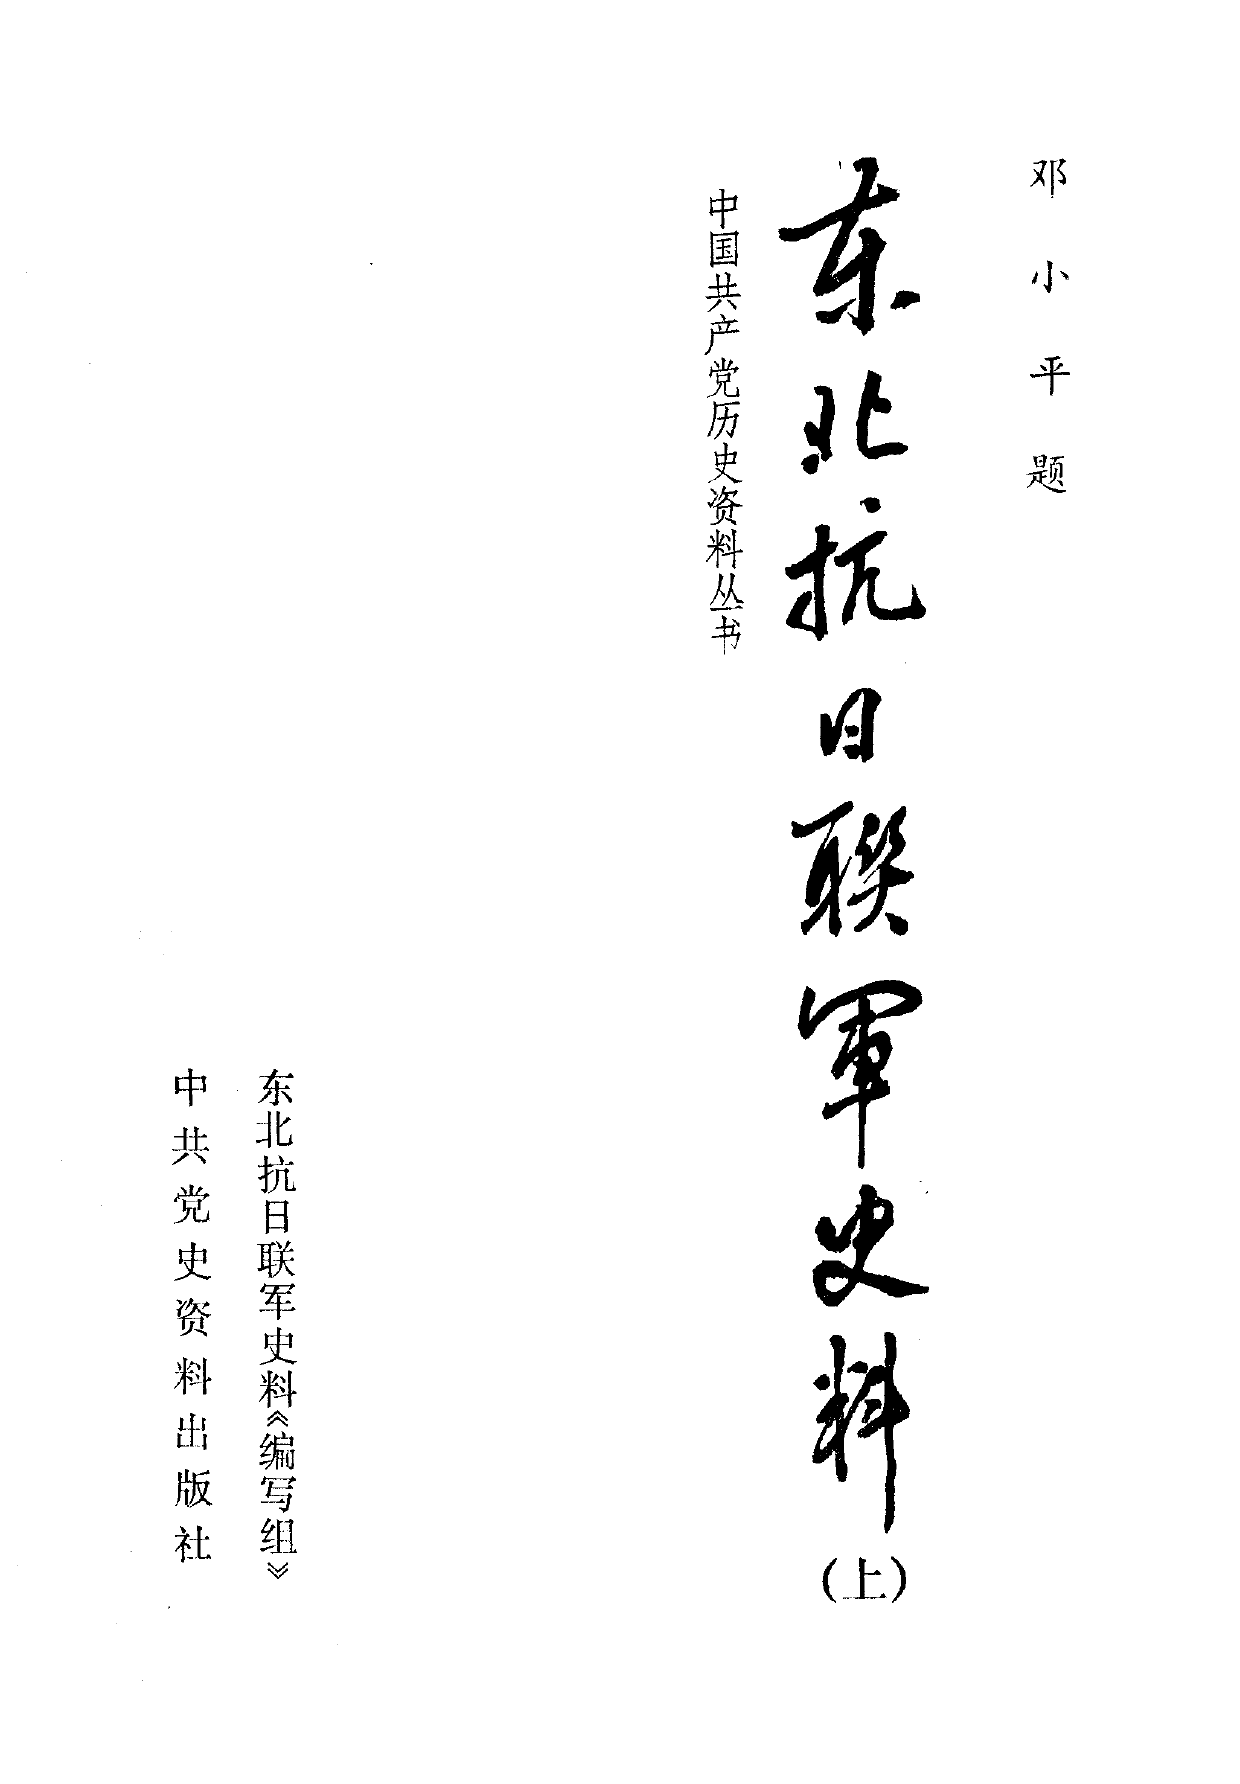 邓小平题
东北抗日聯軍史料
(上)
中国共产党历史资料丛书
东北抗日联军史料《编写组》
中共党史资料出版社